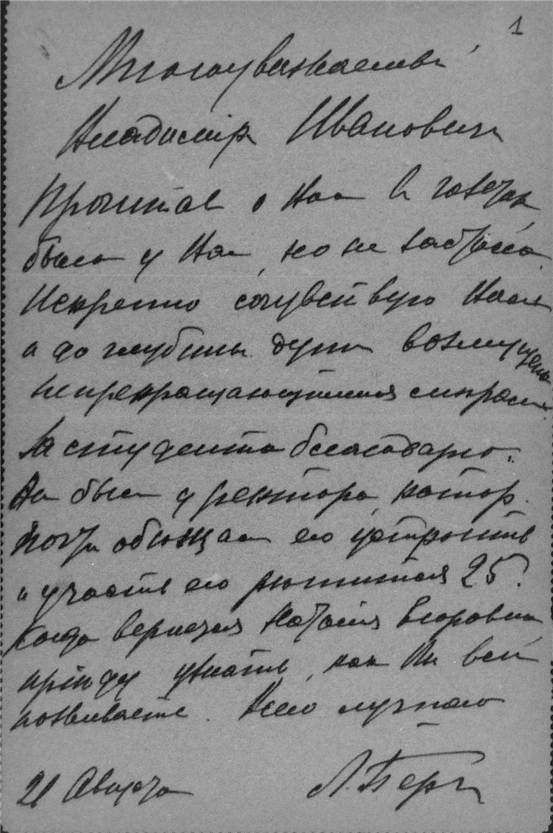 1
Многоуважаемый
Владимір Ивановичъ
Прочитав о Вас в газетах
была у Вас, но не застала.
Искренно сочувствую Вам
и до глубины души возмущена
непрекращающимися
За студента благодарю.
Он был у ректора, котор.
почти обещал его устроить
и участь его решится 25.
Когда вернется Наталия Егоровна
приду узнать, как Вы все
поживаете. Всего лучшаго
21 Августа Л. Берг